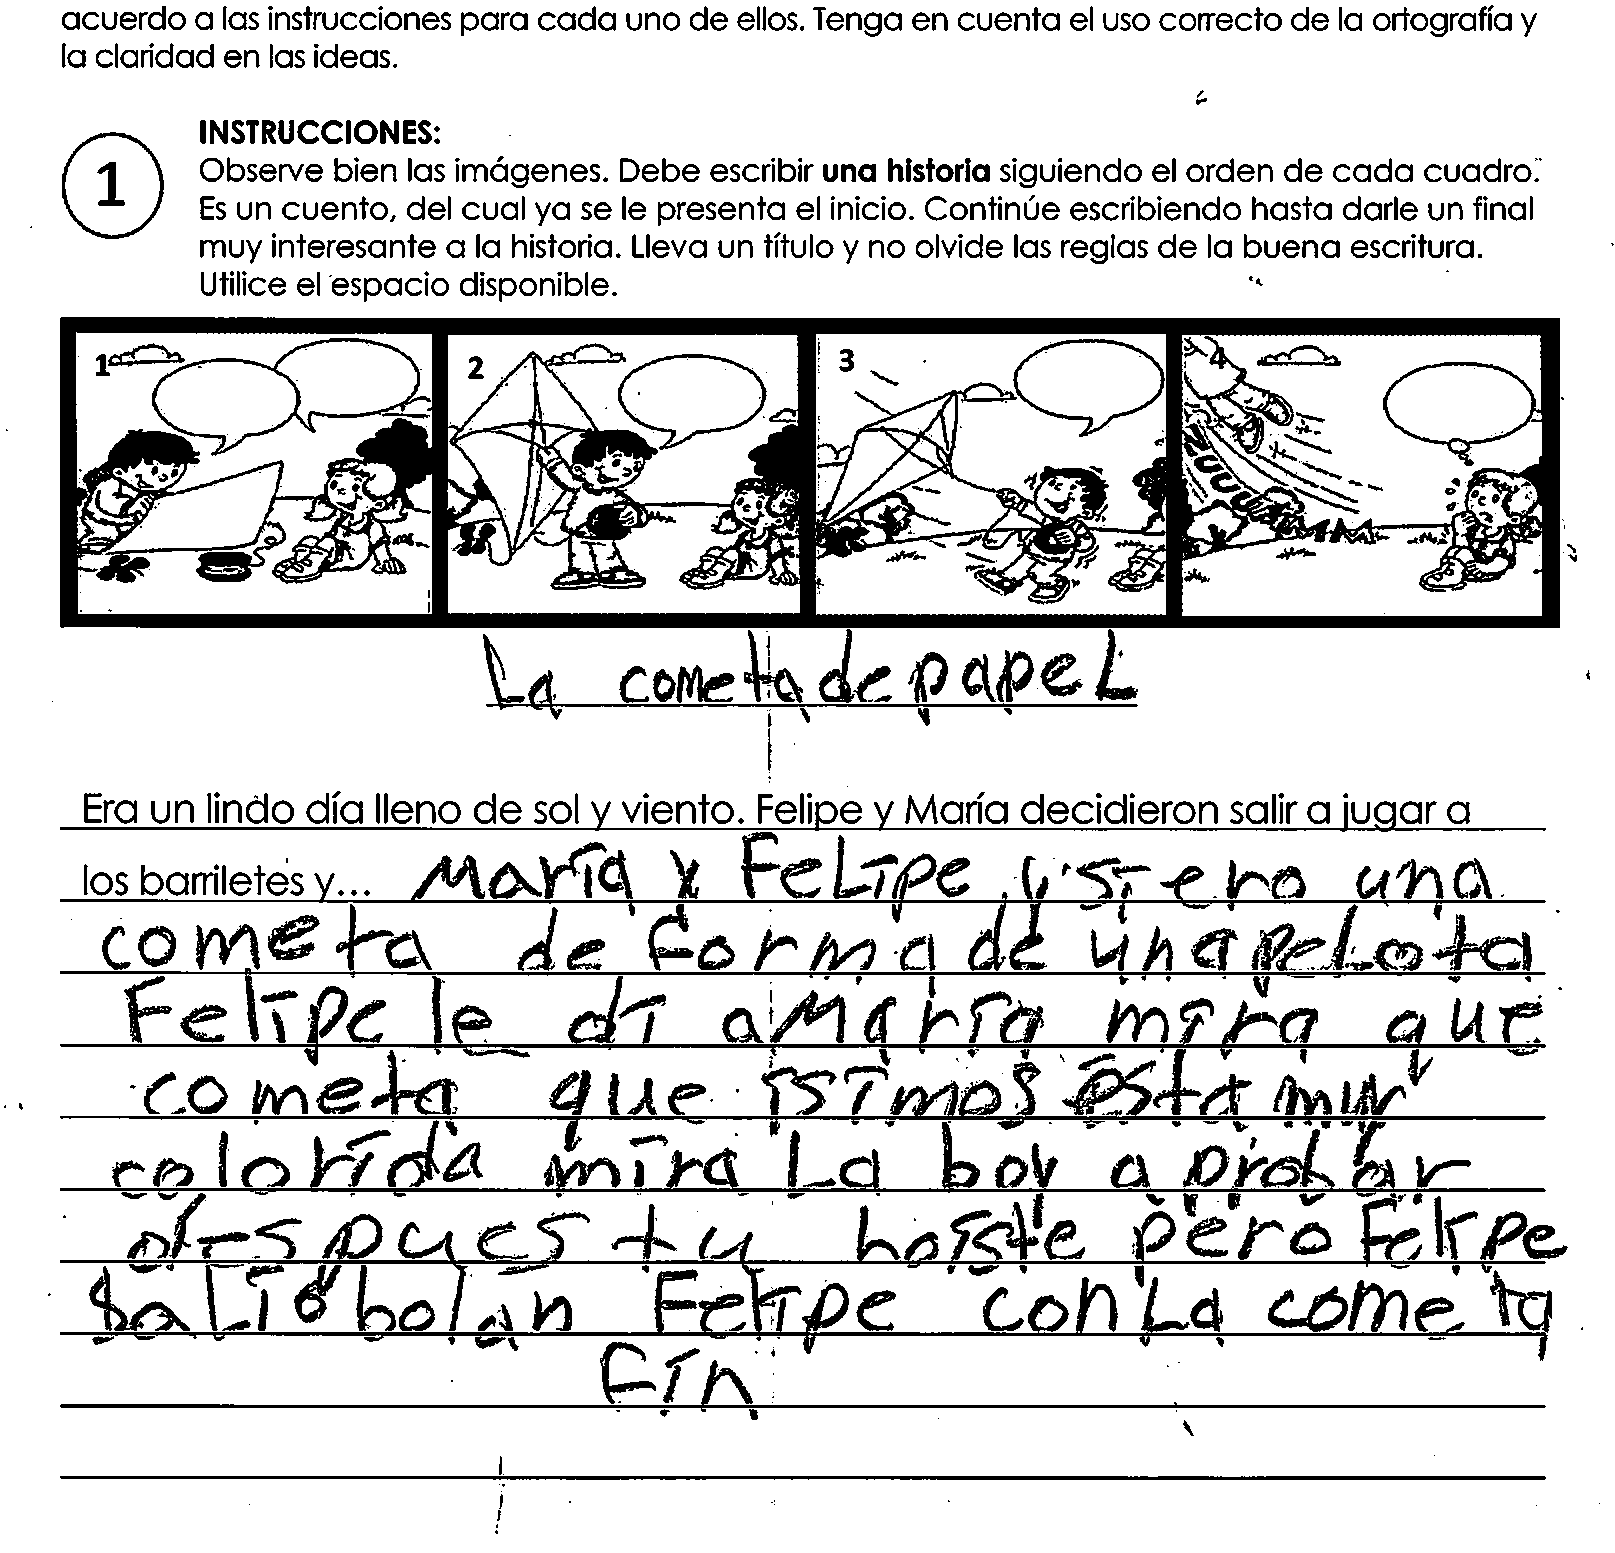 acuerdo a las instrucciones para cada uno de ellos. Tenga en cuenta el uso correcto de la ortografía y
la claridad en las ideas.
1
INSTRUCCIONES:
Observe bien las imágenes. Debe escribir una historia siguiendo el orden de cada cuadro.
Es un cuento, del cual ya se le presenta el inicio. Continúe escribiendo hasta darle un final
muy interesante a la historia. Lleva un título y no olvide las reglas de la buena escritura.
Utilice el espacio disponible.
1 2 3 4
La cometa de papel
Era un lindo día lleno de sol y viento. Felipe y María decidieron salir a jugar a
los barriletes y... María y Felipe una
cometa de forma de una pelota
Felipe le di a María mira que
cometa que isimos esta muy
colorida mira la boy a probar
despues tu pero Felipe
salió bolan Felipe con la cometa
Fin